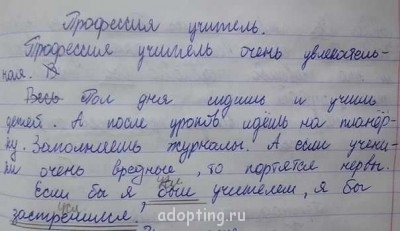 Профессия учитель.
Профессия учитель очень увлекатель-
ная.
Весь Пол дня сидишь и учишь
детей. А после уроков идёшь на планёр-
ку. Заполняешь журналы. А если учени-
ки очень вредные, то портятся нервы.
Если бы я был учителем, я бы
застрелился.
adopting.ru